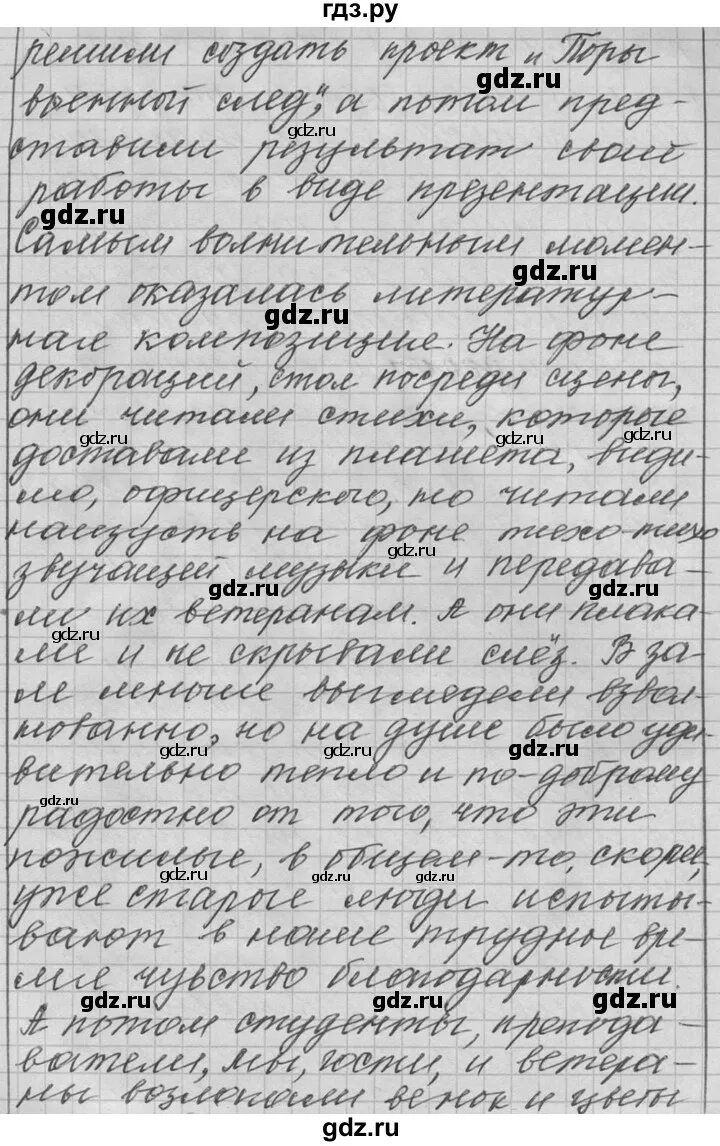 гдз.ру
решили создать проект „Поры
военной след", а потом пред-
ставили результат своей
работы в виде презентации.
Самым волнительным момен-
том оказалась литератур-
ная композиция. На фоне
декораций, стоя посреди сцены,
они читали стихи, которые
доставали из планшета, види-
мо, офицерского, то читали
наизусть на фоне тихо-тихо
звучащей музыки и передава-
ли их ветеранам. А они плака-
ли и не скрывали слёз. В за-
ле многие выглядели взвол-
нованно, но на душе было уди-
вительно тепло и по-доброму
радостно от того, что эти
пожилые, в общем-то, скорее,
уже старые люди испыты-
вают в наше трудное вре-
мя чувство благодарности.
А потом студенты, препода-
ватели, мы, гости, и ветера-
ны возлагали венок и цветы